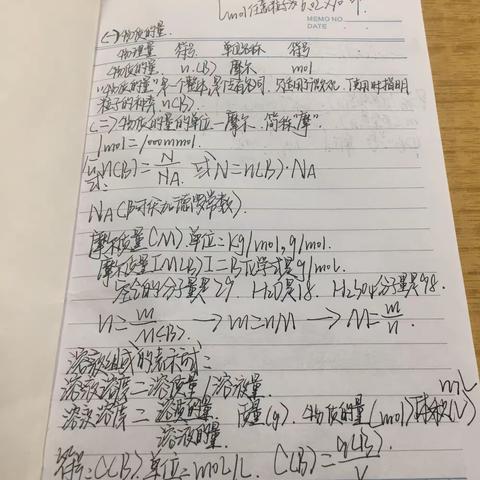 1mol任意粒子为6.02×10
MEMO NO.
DATE
(一)物质的量.
物理量 符号 单位名称 符号
物质的量 n(B) 摩尔 mol
"物质的量"是一个整体,是 只适用于微观 使用时指明
粒子的种类 n(B).
(二)物质的量的单位—摩尔.简称"摩".
1mol=1000mmol.
n(B)=N/NA 或N=n(B)·NA
NA(阿伏加德罗常数).
摩尔质量(M)单位=Kg/mol,g/mol.
摩尔质量[M(B)]=B化学式量g/moL.
空气的分子量是29. H2O是18. H2SO4分子量是98.
n=m/M(B). →m=nM →M=m/n.
溶液组成的表示时:
溶液浓度=溶质量/溶液量. mL
溶液浓度=溶质的量/溶液的量. 质量(g).物质的量(mol)体积(V)
符号=C(B).单位=moL/L. C(B)=n(B)/V.